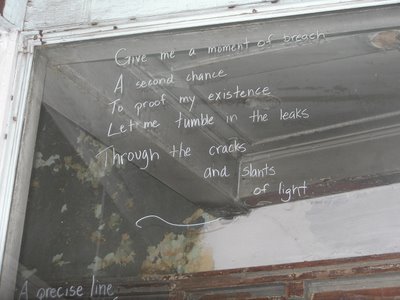 Give me a moment of breach
A second chance
To proof my existence
Let me tumble in the leaks
Through the cracks
and slants
of light
A precise line